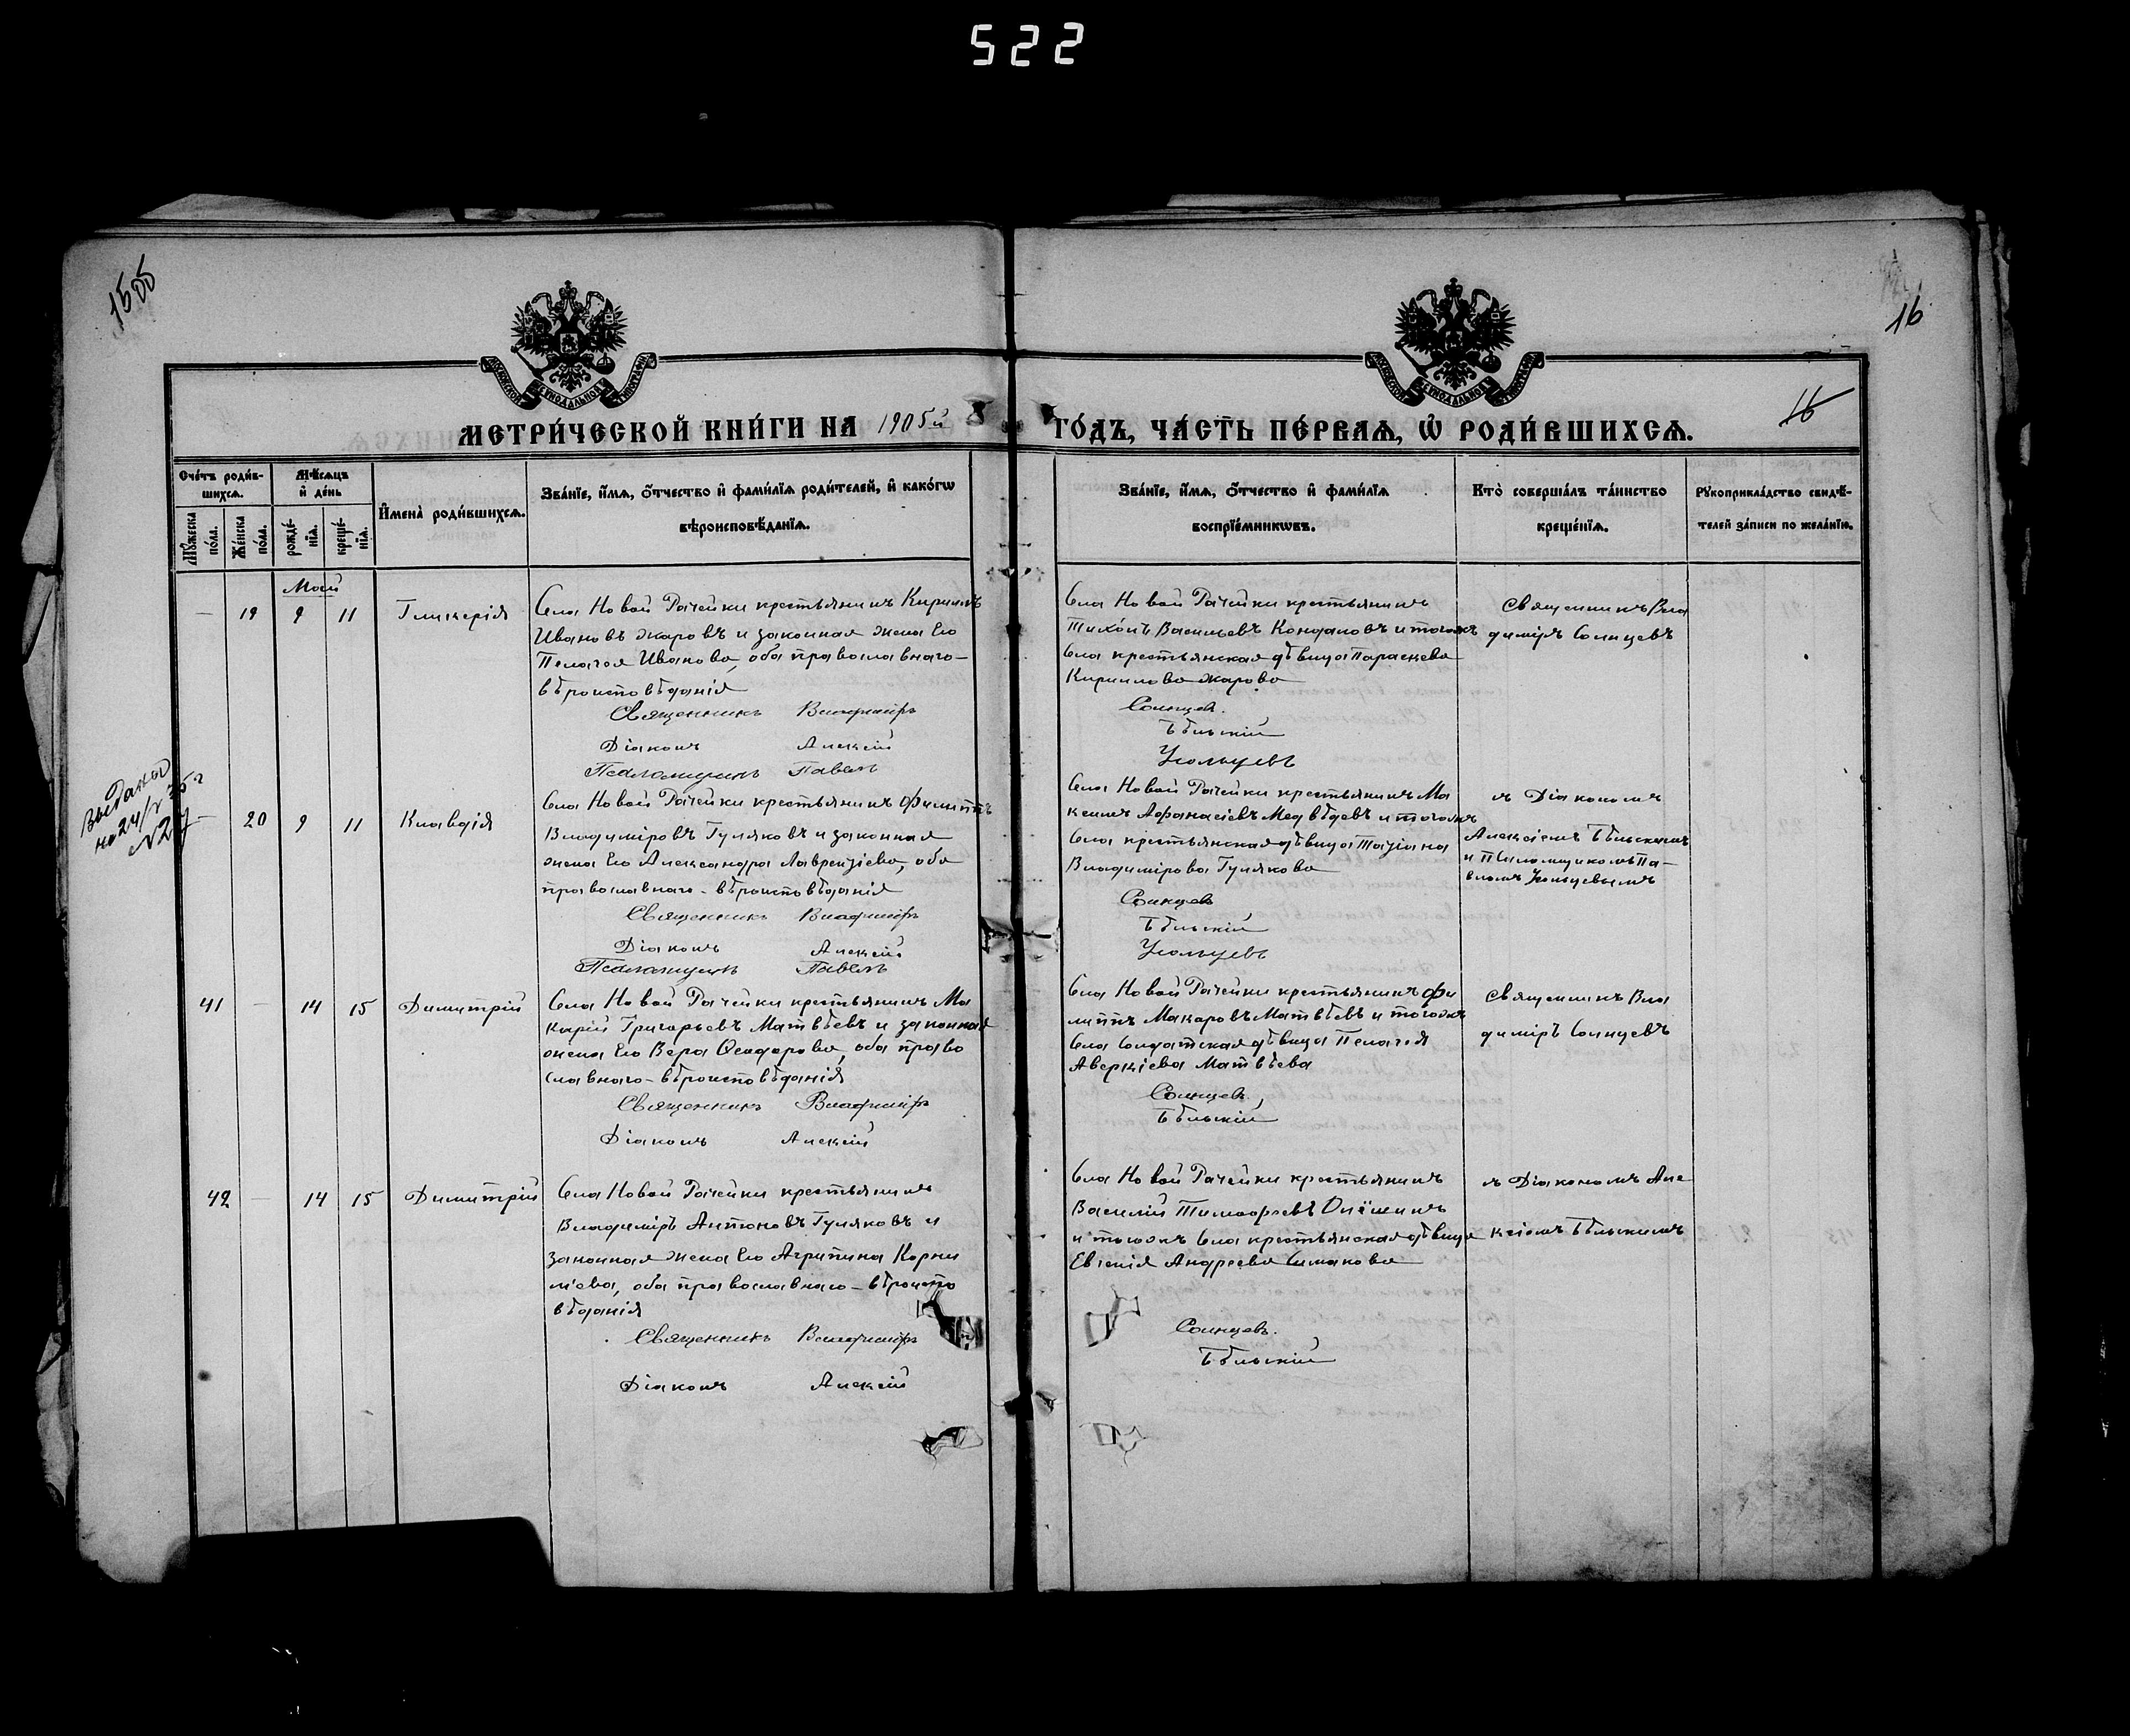 522
16
МЕТРИ́ЧЕСКОЙ КНИ́ГИ НА 1905й
ГО́ДЪ, ЧА́СТЬ ПЕ́РВАѦ, Ѡ҆ РОДИ́ВШИХСѦ.
16
Сче́тъ роди́в-
шихсѧ.
Мꙋ́жеска по́ла.
Же́нска по́ла.
Мѣ́сѧцъ
и҆ де́нь
рожде́-
нїѧ.
креще́-
нїѧ.
И҆мена̀ роди́вшихсѧ.
Зва́нїе, и҆́мѧ, ѻ҆́тчество и҆ фами́лїѧ роди́телей, и҆ како́гѡ
вѣроисповѣ́данїѧ.
Зва́нїе, и҆́мѧ, ѻ҆́тчество и҆ фами́лїѧ
воспрїе́мникѡвъ.
Кто̀ соверша́лъ та́инство
креще́нїѧ.
Рꙋкоприкла́дство свидѣ́-
телей за́писи по жела́нїю.
Май
— 19 9 11 Гликерія
Села Новой Рачейки крестьянинъ Кириллъ
Ивановъ Жаровъ и законная жена Его
Пелагея Иванова, оба православнаго-
вѣроисповѣданія
Священникъ Владиміръ
Діаконъ Алексій
Псаломщикъ Павелъ
Села Новой Рачейки крестьянинъ
Тихонъ Васильевъ Кондаковъ и тогожъ
Села крестьянская дѣвица Параскева
Кириллова Жарова
Солнцев.
Бѣльскій
Усольцевъ
Священникъ Вла
диміръ Солнцевъ
Выдано
на 24/V 35 г
N 27
— 20 9 11 Клавдія
Села Новой Рачейки крестьянинъ Филиппъ
Владиміровъ Гуляковъ и законная
жена Его Александра Лаврентіева, оба
православнаго-вѣроисповѣданія
Священникъ Владиміръ
Діаконъ Алексій
Псаломщикъ Павелъ
Села Новой Рачейки крестьянинъ Ма
ксимъ Афанасіевъ Медвѣдевъ и тогожъ
Села крестьянская дѣвица Татіана
Владимірова Гулякова
Солнцев
Бѣльскій
Усольцевъ
съ Діакономъ
Алексіемъ Бѣльскимъ
и Псаломщикомъ Па-
вломъ Усольцевымъ
41 — 14 15 Димитрій
Села Новой Рачейки крестьянинъ Ма
карій Григорьевъ Матвѣевъ и законная
жена Его Вера Ѳеодорова, оба право
славнаго-вѣроисповѣданія
Священникъ Владиміръ
Діаконъ Алексій
Села Новой Рачейки крестьянинъ Фи
липпъ Макаровъ Матвѣевъ и тогожъ
Села Солдатская дѣвица Пелагея
Аверкіева Матвѣева
Солнцев.
Бѣльскій
Священникъ Вла
диміръ Солнцевъ
42 — 14 15 Димитрій
Села Новой Рачейки крестьянинъ
Владиміръ Антоновъ Гуляковъ и
законная жена Его Агрипина Корни
ліева, оба православнаго-вѣроиспо
вѣданія
Священникъ Владиміръ
Діаконъ Алексій
Села Новой Рачейки крестьянинъ
Василій Тимофеевъ
и тогожъ Села крестьянская дѣвица
Евгенія Андреева Симакова
Солнцевъ.
Бѣльскій
съ Діакономъ Але
ксіемъ Бѣльскимъ